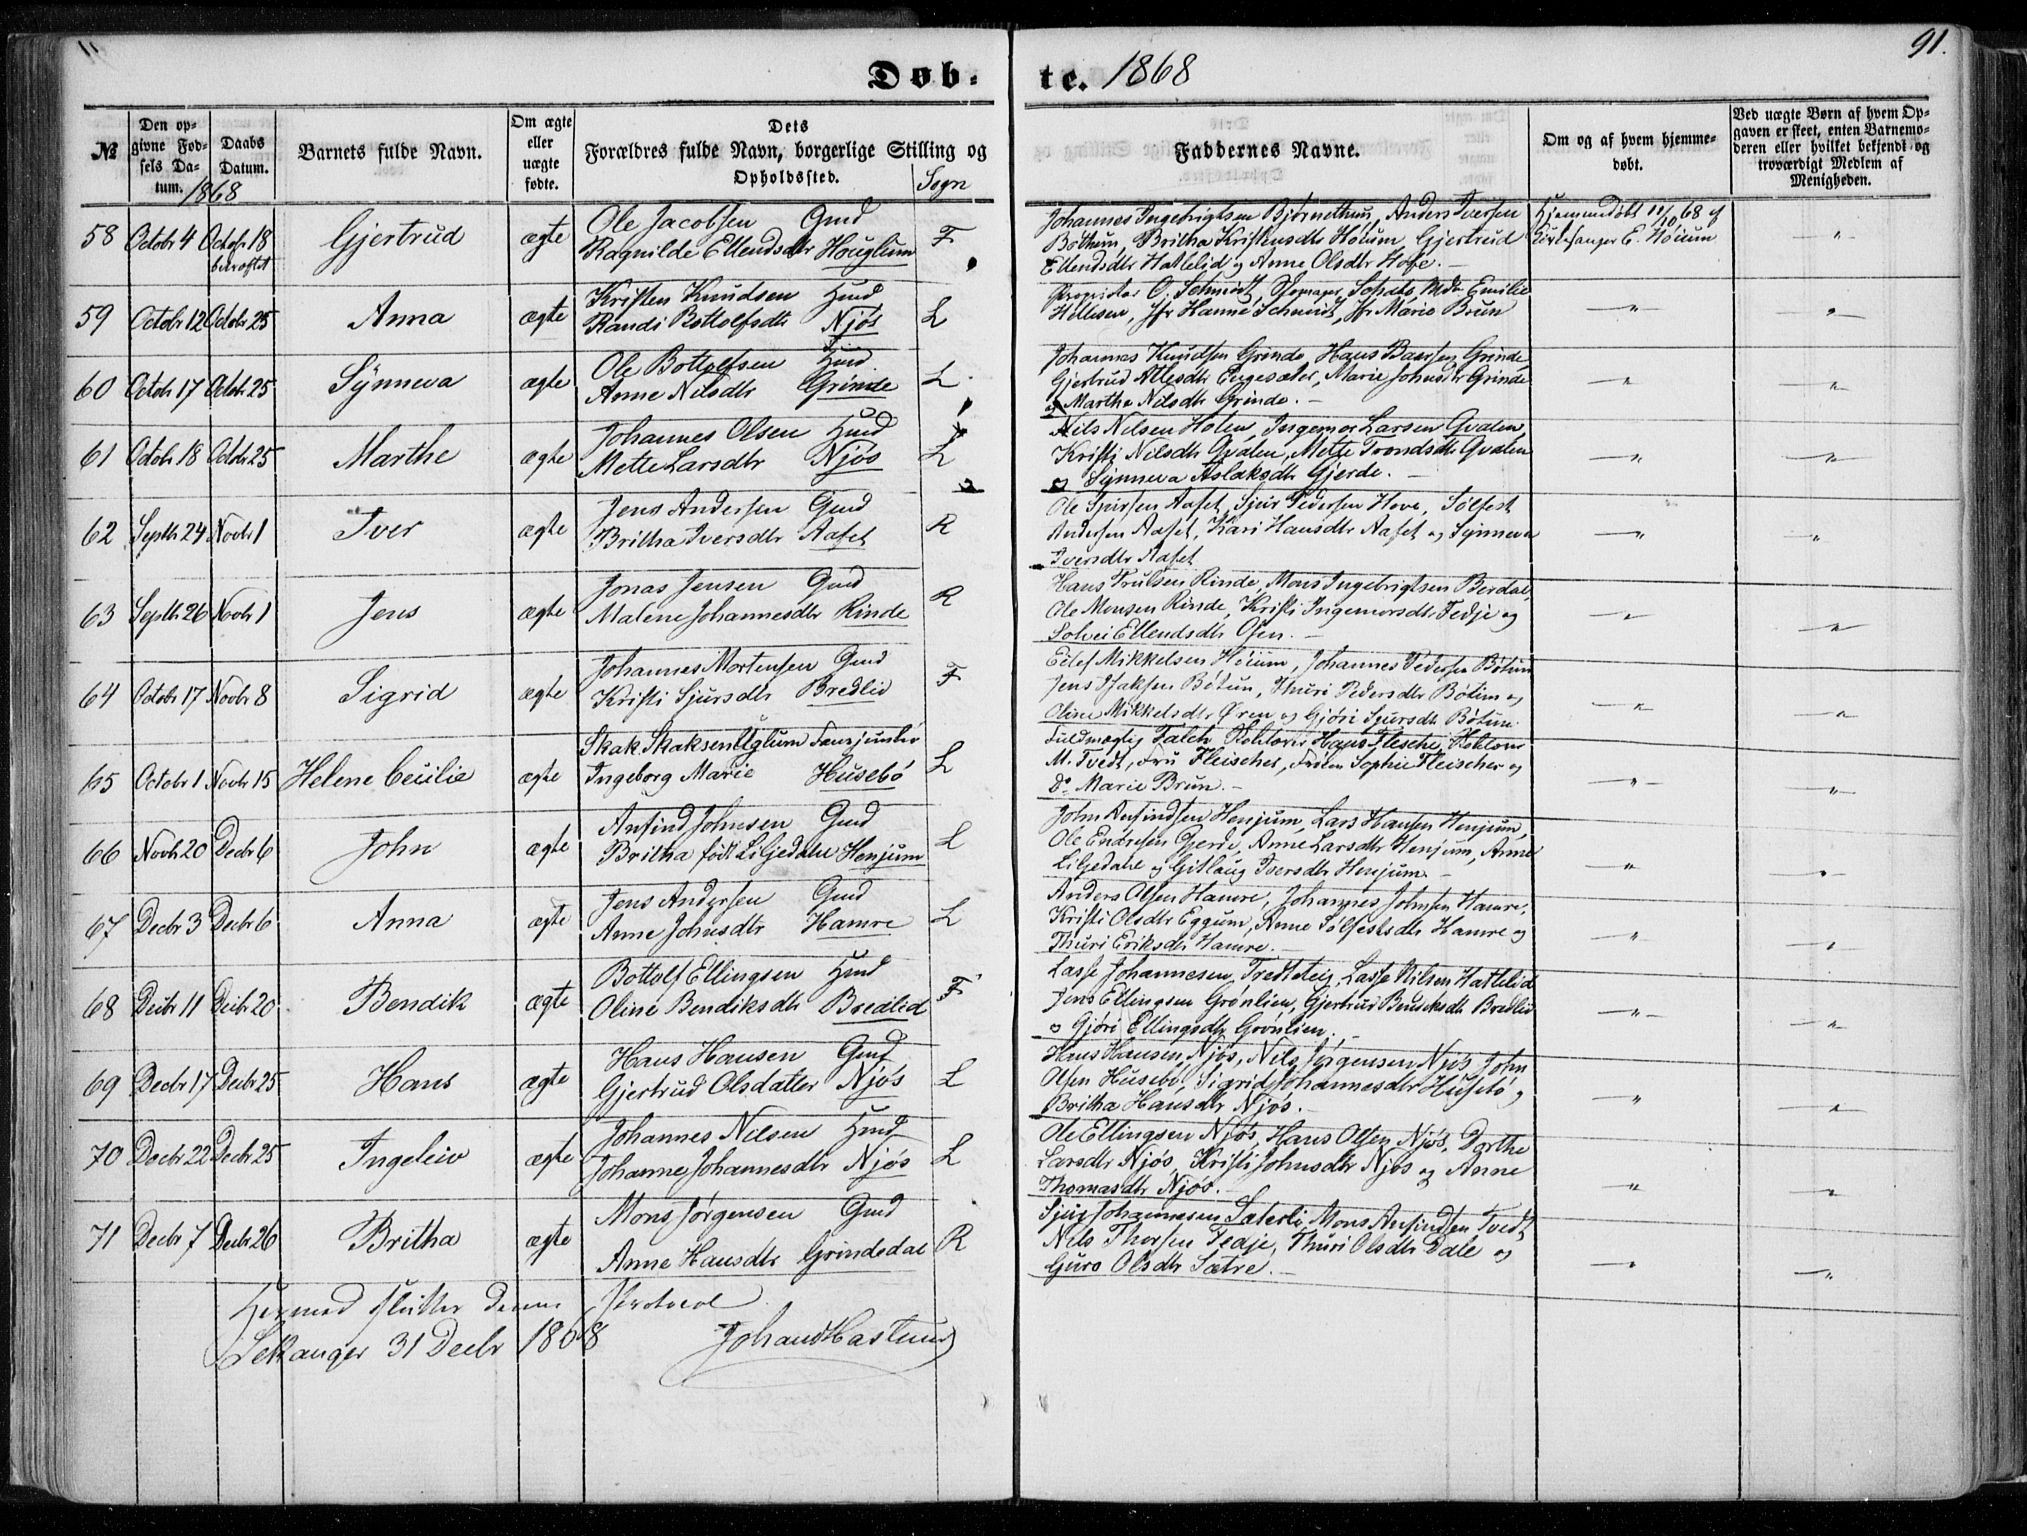 91.
Døb- te. 1868
№
Den op-
givne Fød-
sels Da-
tum.
Daabs
Datum.
1868
Barnets fulde Navn.
Om ægte
eller
uægte
fødte.
Dets
Forældres fulde Navn, borgerlige Stilling og
Opholdssted.
Sogn
Faddernes Navne.
Om og af hvem hjemme-
døbt.
Ved uægte Børn af hvem Op-
gaven er skeet, enten Barnemo-
deren eller hvilket bekjendt og
troværdigt Medlem af
Menigheden.
58 Octobr 4 Octobr 18 Gjertrud ægte Ole Jacobsen Gmd F
bekræftet Ragnilde Ellendsdtr Houglum
Johannes Ingebrigtsen Bjørnethun, Anders Iversen
Bøthun, Britha Kristensdtr Høium, Gjertrud
Ellendsdtr Hatlelid og Anne Olsdtr Hofe.
Hjemmedøbt 11/10 68 af
Kirkesanger E. Høium
59 Octobr 12 Octobr 25 Anna ægte Kristen Knudsen Hmd L
Randi Bottolfsdtr Njøs
Proprietær O. Schmidt, Emilie
Jfr Hanne Schmidt, Jfr Marie Brun
60 Octobr 17 Octobr 25 Synneva ægte Ole Bottolfsen Hmd L
Anne Nilsdtr Grinde
Johannes Knudsen Grinde, Hans Baarsen Grinde,
Gjertrud Atlesdtr Engesæter, Marie Johnsdtr Grinde
og Martha Nilsdtr Grinde.
61 Octobr 18 Octobr 25 Marthe ægte Johannes Olsen Hmd L
Mette Larsdtr Njøs
Nils Nilsen Holen, Ingemar Larsen Qvalen,
Kristi Nilsdtr Qvalen, Mette Trondsdtr Qvalen
og Synneva Aslaksdtr Gjerde.
62 Septbr 24 Novbr 1 Iver ægte Jens Andersen Gmd R
Britha Iversdtr Aafet
Ole Sjursen Aafet, Sjur Pedersen Hove, Sølfest
Andersen Aafet, Kari Hansdtr Aafet og Synneva
Iversdtr Aafet
63 Septbr 26 Novbr 1 Jens ægte Jonas Jensen Gmd R
Malene Johannesdtr Rinde
Hans Trulsen Rinde, Mons Ingebrigtsen Berdal,
Ole Monsen Rinde, Kristi Ingemorsdtr Fedje og
Solvei Ellendsdtr Ofen.
64 Octobr 17 Novbr 8 Sigrid ægte Johannes Mortensen Gmd F
Kristi Sjursdtr Bredlid
Eilef Mikkelsen Høium, Johannes Pedersen Bøtun
Jens Isaksen Bøtun, Thuri Pedersdtr Bøtun og
Oline Mikkelsdtr Øren og Gjøri Sjursdtr Bøtun.
65 Octobr 1 Novbr 15 Helene Cecilie ægte Skak Skaksen Uglum L
Ingeborg Marie Husebø
Fuldmægtig Falch, Hans Flesche,
M. Tvedt, Fru Fleischer, Frøken Sophie Fleischer og
Do Marie Brun.
66 Novbr 20 Decbr 6 John ægte Anfind Johnsen Gmd L
Britha født Liljedale Henjum
John Anfindsen Henjum, Lars Hansen Henjum,
Ole Endresen Gjerde, Anne Larsdtr Henjum, Anne
Liljedale og Gitlaug Iversdtr Henjum.
67 Decbr 3 Decbr 6 Anna ægte Jens Andersen Gmd L
Anne Johnsdtr Hamre
Anders Olsen Hamre, Johannes Johnsen Hamre,
Kristi Olsdtr Eggum, Anne Sølfestsdtr Hamre og
Thuri Eriksdtr Hamre.
68 Decbr 11 Decbr 20 Bendik ægte Bottolf Ellingsen Hmd F
Oline Bendiksdtr Bredlid
Lasse Johannesen Tredteteig, Lasse Nilsen Hatlelid
Jens Ellingsen Grønlien, Gjertrud Bendiksdtr Bredlid
og Gjøri Ellingsdtr Grønlien.
69 Decbr 17 Decbr 25 Hans ægte Hans Hansen Gmd L
Gjertrud Olsdatter Njøs
Hans Hansen Njøs, Nils Jørgensen Njøs, John
Olsen Husebø, Sigrid Johannesdtr Husebø og
Britha Hansdtr Njøs.
70 Decbr 22 Decbr 25 Ingeleiv ægte Johannes Nilsen Hmd L
Johanne Johannesdtr Njøs
Ole Ellingsen Njøs, Hans Olsen Njøs, Dorthe
Larsdtr Njøs, Kristi Johnsdtr Njøs og Anne
Thomasdtr Njøs.
71 Decbr 7 Decbr 26 Britha ægte Mons Jørgensen Gmd R
Anne Hansdtr Grindedal
Sjur Johannesen Sæterli, Mons Anfindsen Tvedt,
Nils Thorsen Fedje, Thuri Olsdtr Dale og
Guro Olsdtr Sætre.
Hermed slutter denne Protocol
Leikanger 31 Decbr 1868 Johan Hastund